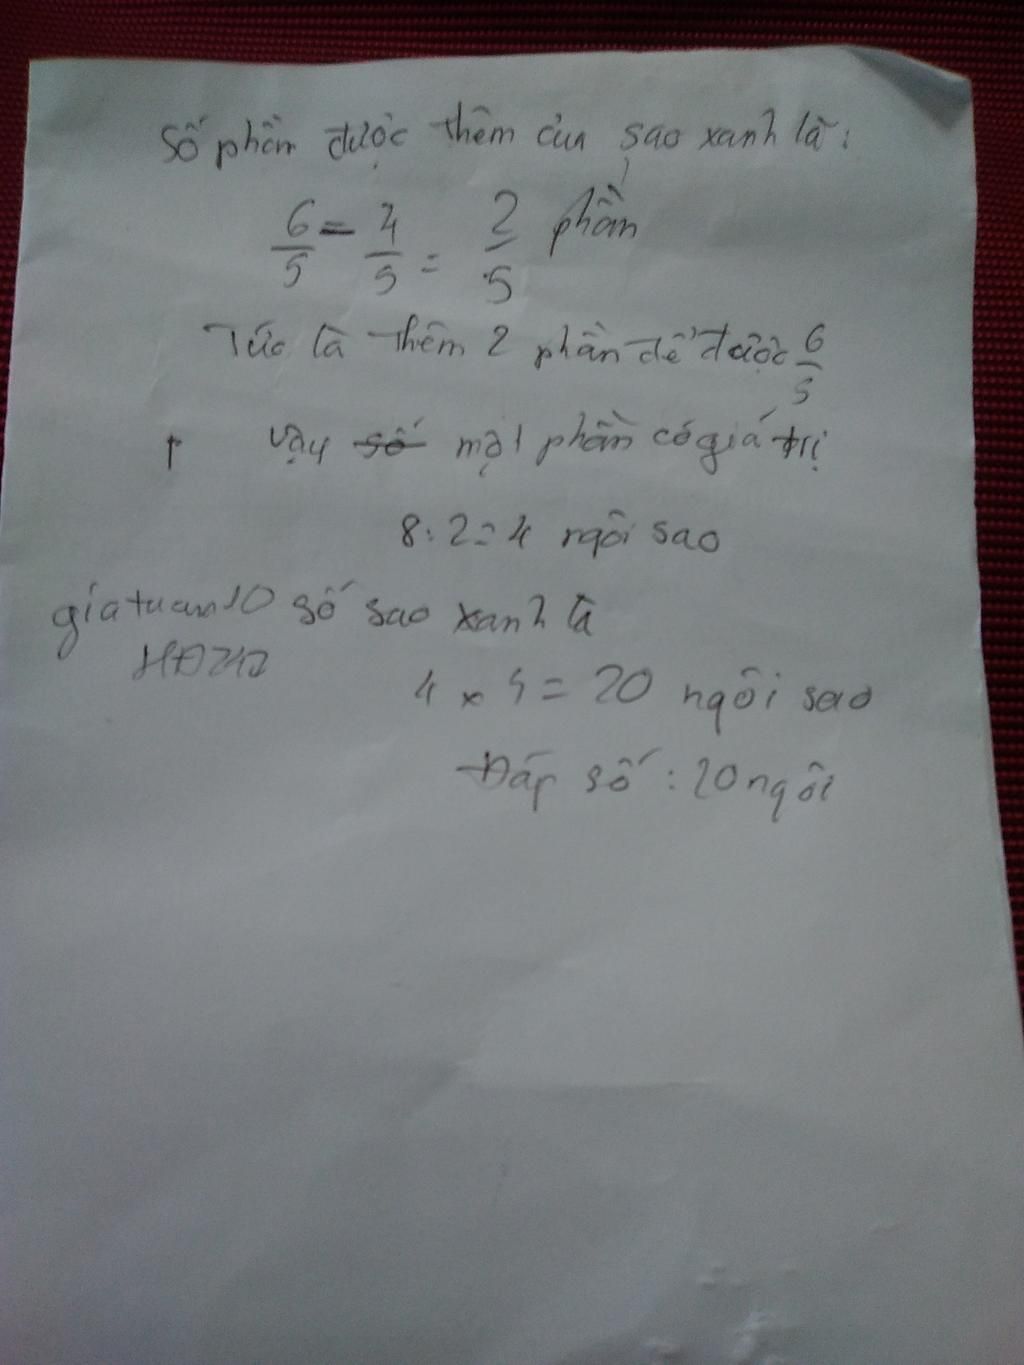 Số phần được thêm của sao xanh là:
6/5 - 4/5 = 2/5 phần
Tức là thêm 2 phần để được 6/5
Vậy số một phần có giá trị
8:2=4 ngôi sao
giatuan10 số sao xanh là
4 x 5 = 20 ngôi sao
Đáp số: 20 ngôi